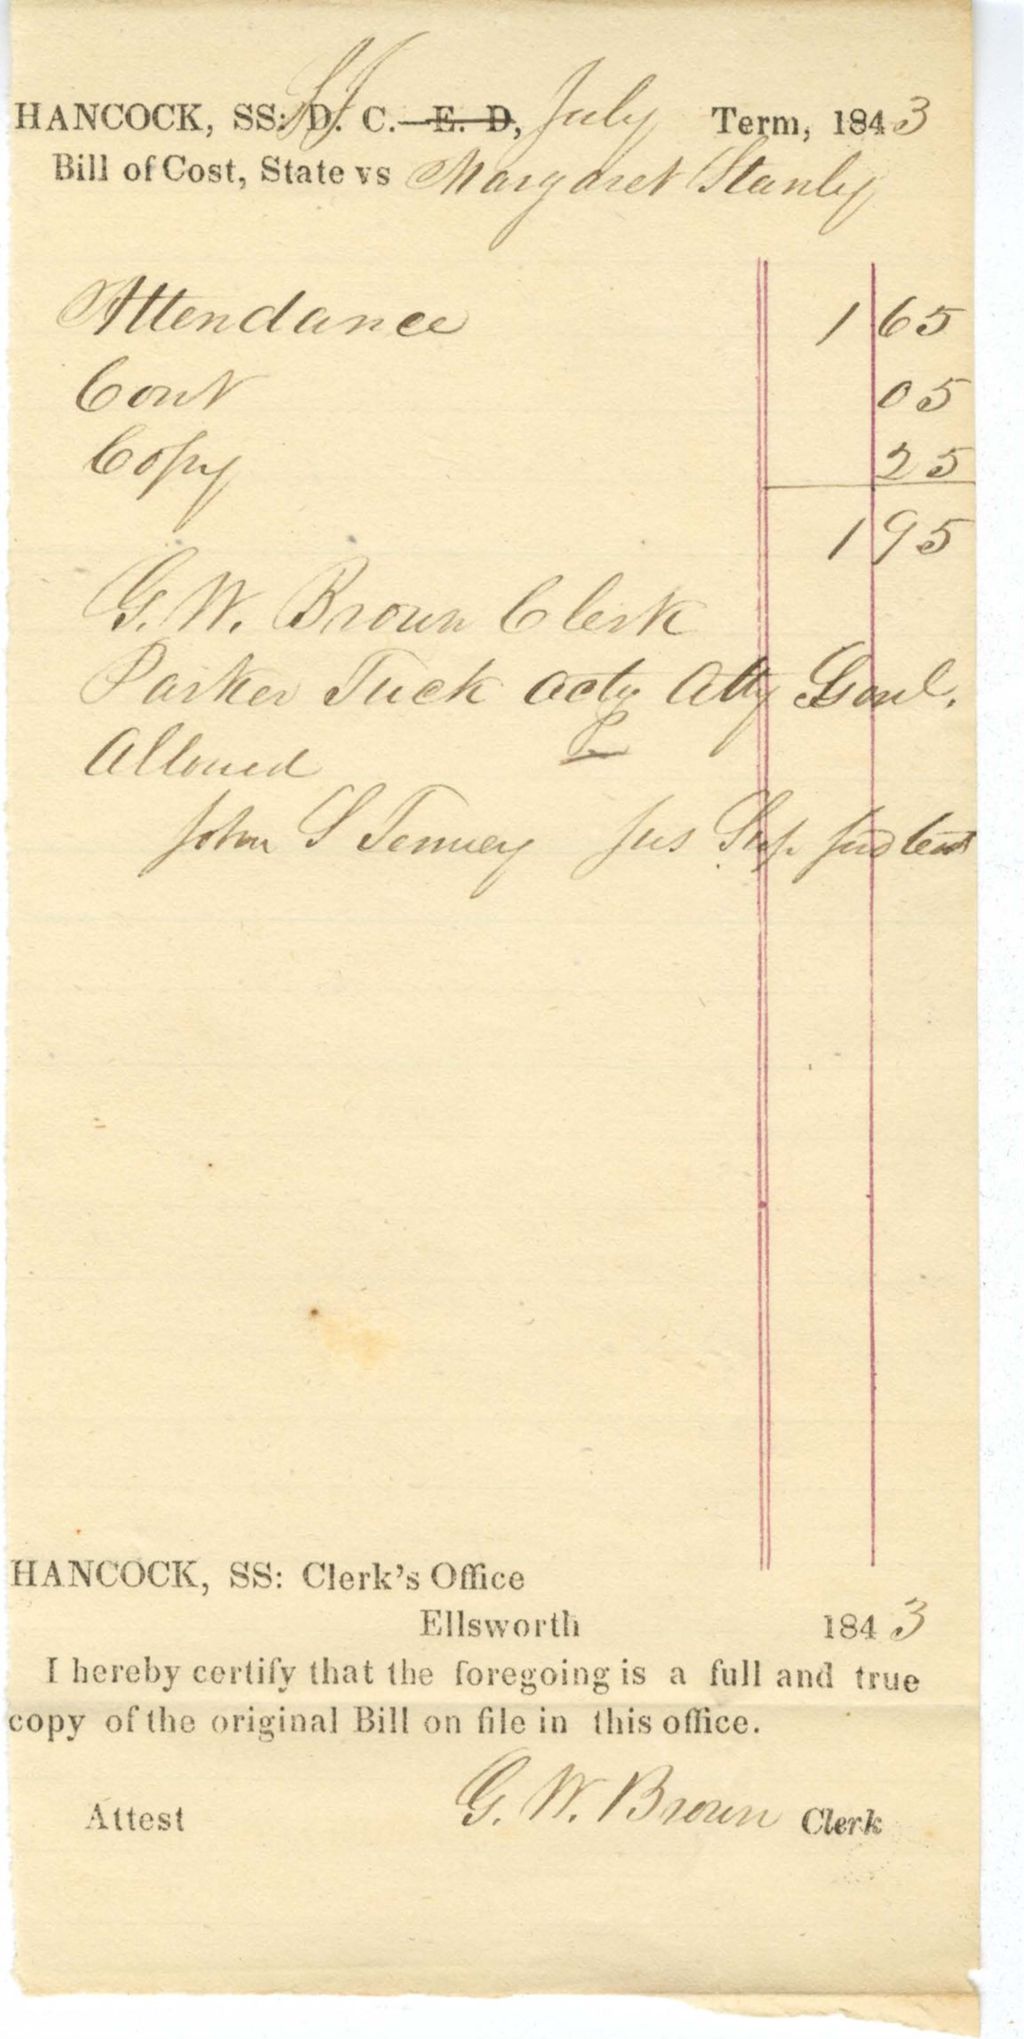 HANCOCK, SS: S J D. C.—E. D, July Term, 1843
Bill of Cost, State vs Margaret Stanly
Attendance 1 65
Cont 05
Copy 25
1 95
G. W. Brown Clerk
Parker Tuck actg Atty Genl.
Allowed
John S Tenney Jus Sup Jud Court
HANCOCK, SS: Clerk's Office
Ellsworth 1843
I hereby certify that the foregoing is a full and true
copy of the original Bill on file in this office.
Attest G. W. Brown Clerk